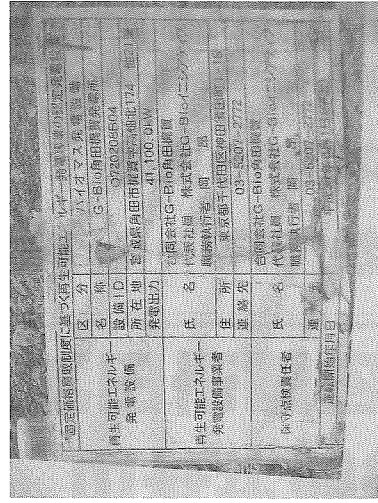 固定価格買取制度に基づく再生可能エネルギー発電事業の認定発電設備
再生可能エネルギー発電設備
区分 バイオマス発電設備
名称 G-Bio角田梶賀発電所
設備ID
所在地 宮城県角田市梶賀字高畑北174
発電出力 41,100.0kW
再生可能エネルギー発電設備事業者
氏名 合同会社G-Bio角田梶賀
代表社員 株式会社G-Bioイニシアティブ
職務執行者
住所 東京都千代田区神田
連絡先 03-5207-2772
保守点検責任者
氏名 合同会社G-Bio角田梶賀
代表社員 株式会社G-Bioイニシアティブ
職務執行者
連絡先 03-5207-2772
運転開始年月日